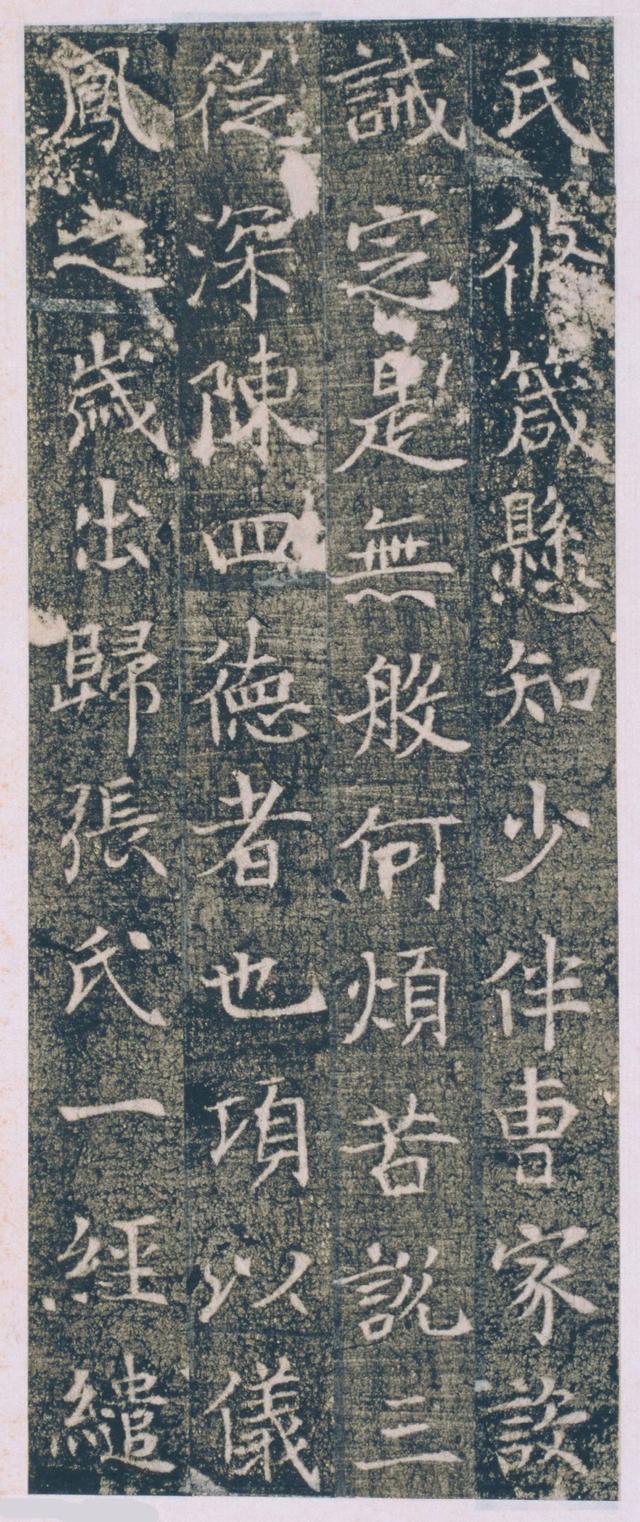 氏彼箴懸知少伴曹家設
誡定是無般何煩苦說三
從深陳四德者也項以儀
鳳之歲出歸張氏一經繾